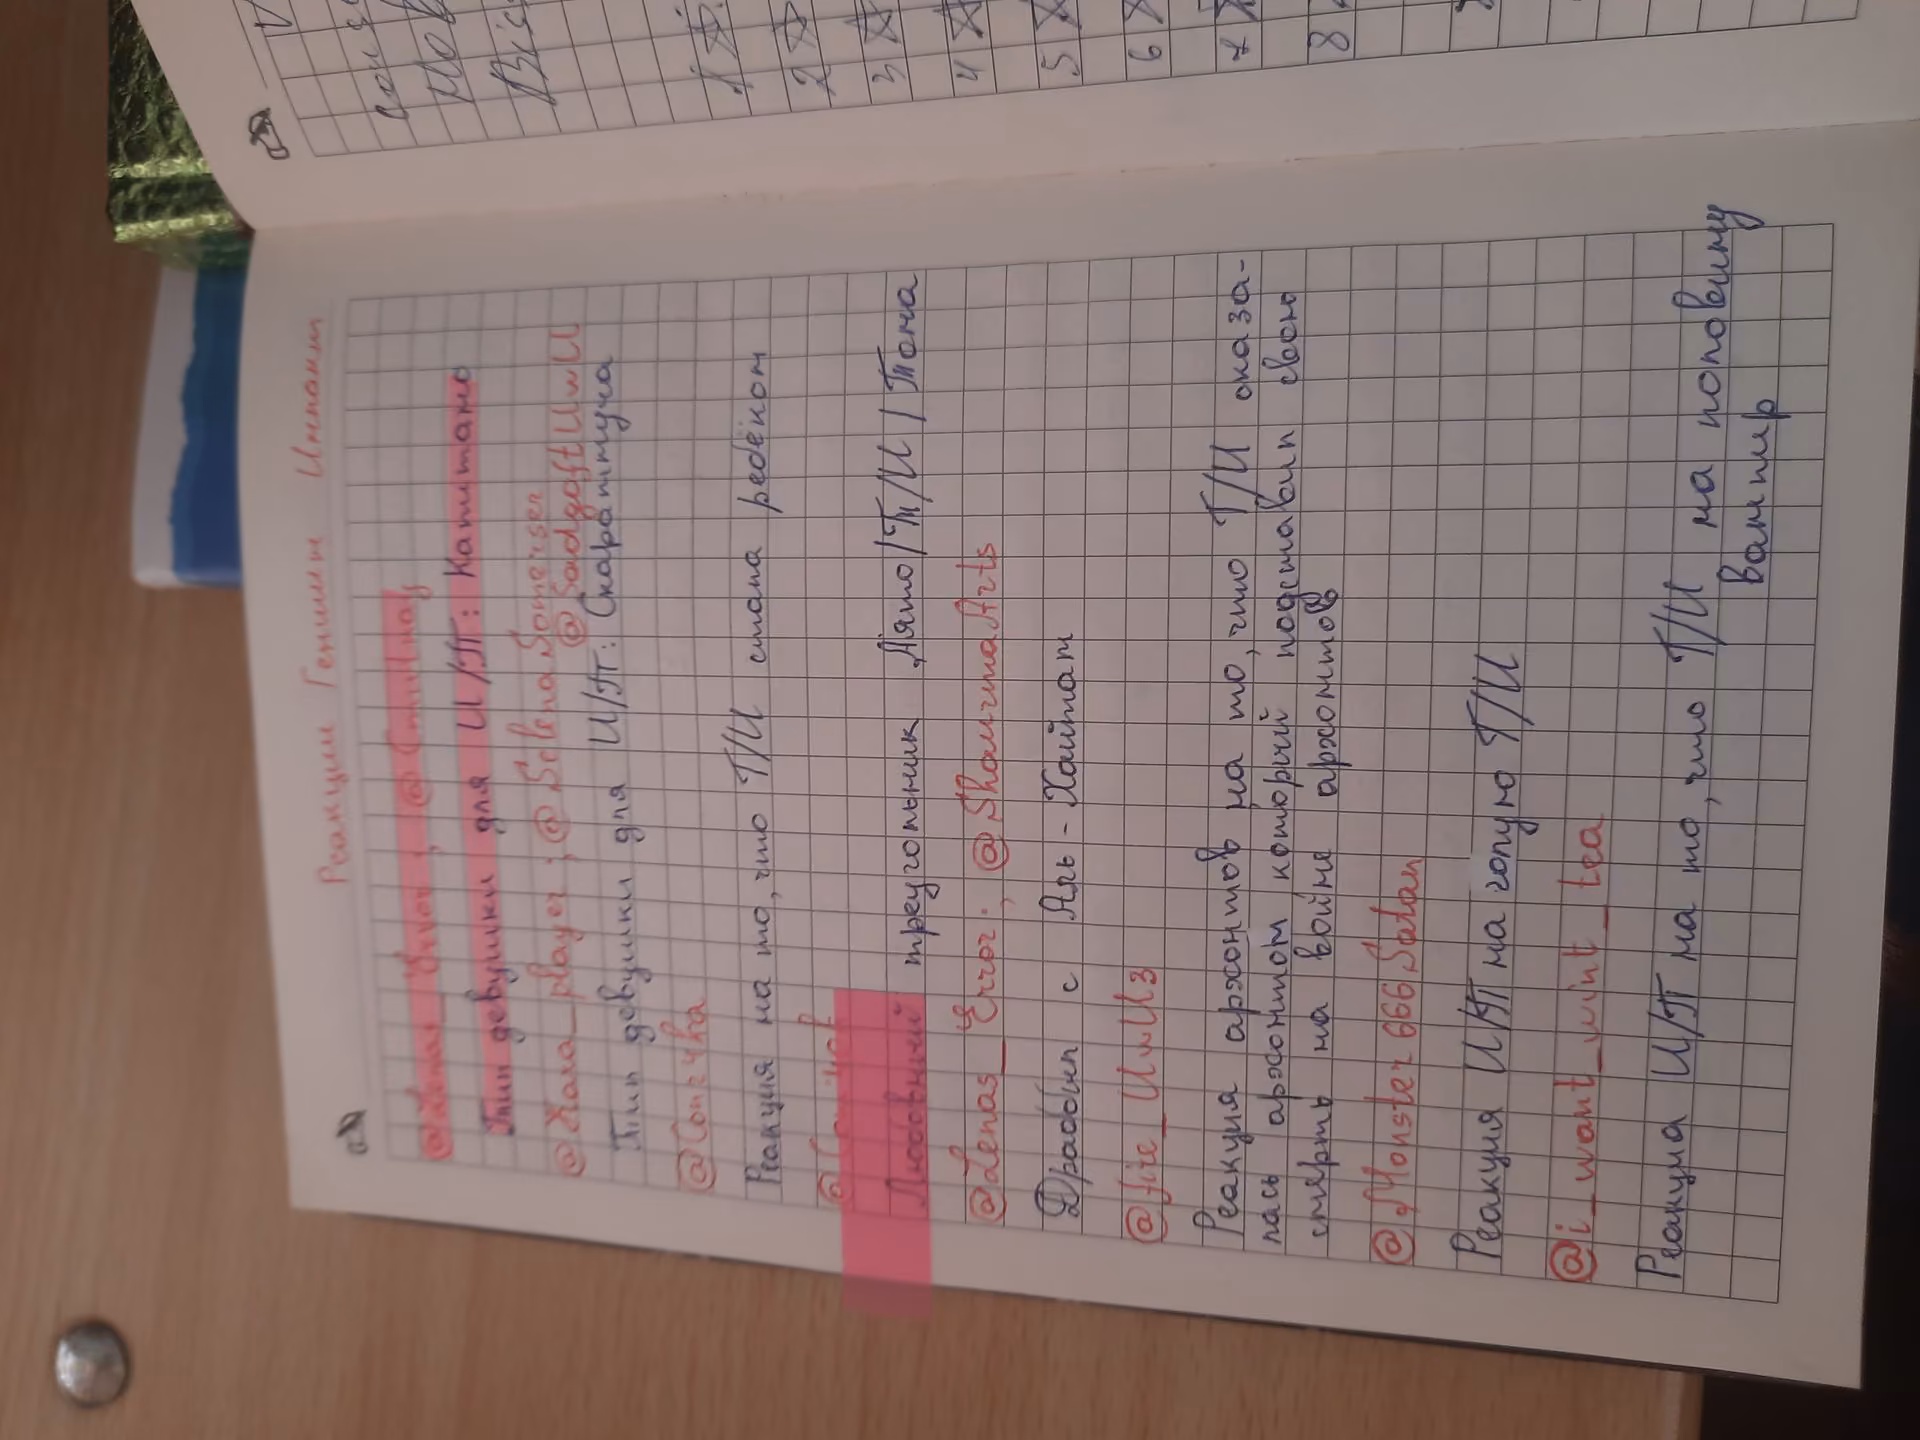 Реакции Геншин Импакт
Тип девушки для И/П: Капитано
@Kara_player ; @SelenaSomerser
@SadgoftUwU
Тип девушки для И/П: Скарамуча
@Con4ka
Реакция на то, что Т/И стала ребёнком
Любовный треугольник Аято/Т/И/Тома
@Lenas_Error ; @ShaurmaArts
Драббл с Аль-Хайтам
@fire_UwU3
Реакция архонтов на то, что Т/И оказа-
лась архонтом который подставил свою
смерть на войне архонтов
@Monster666Satan
Реакция И/П на голую Т/И
@i_want_mint_tea
Реакция И/П на то, что Т/И на половину
вампир
1
2
3
4
5
6
7
8